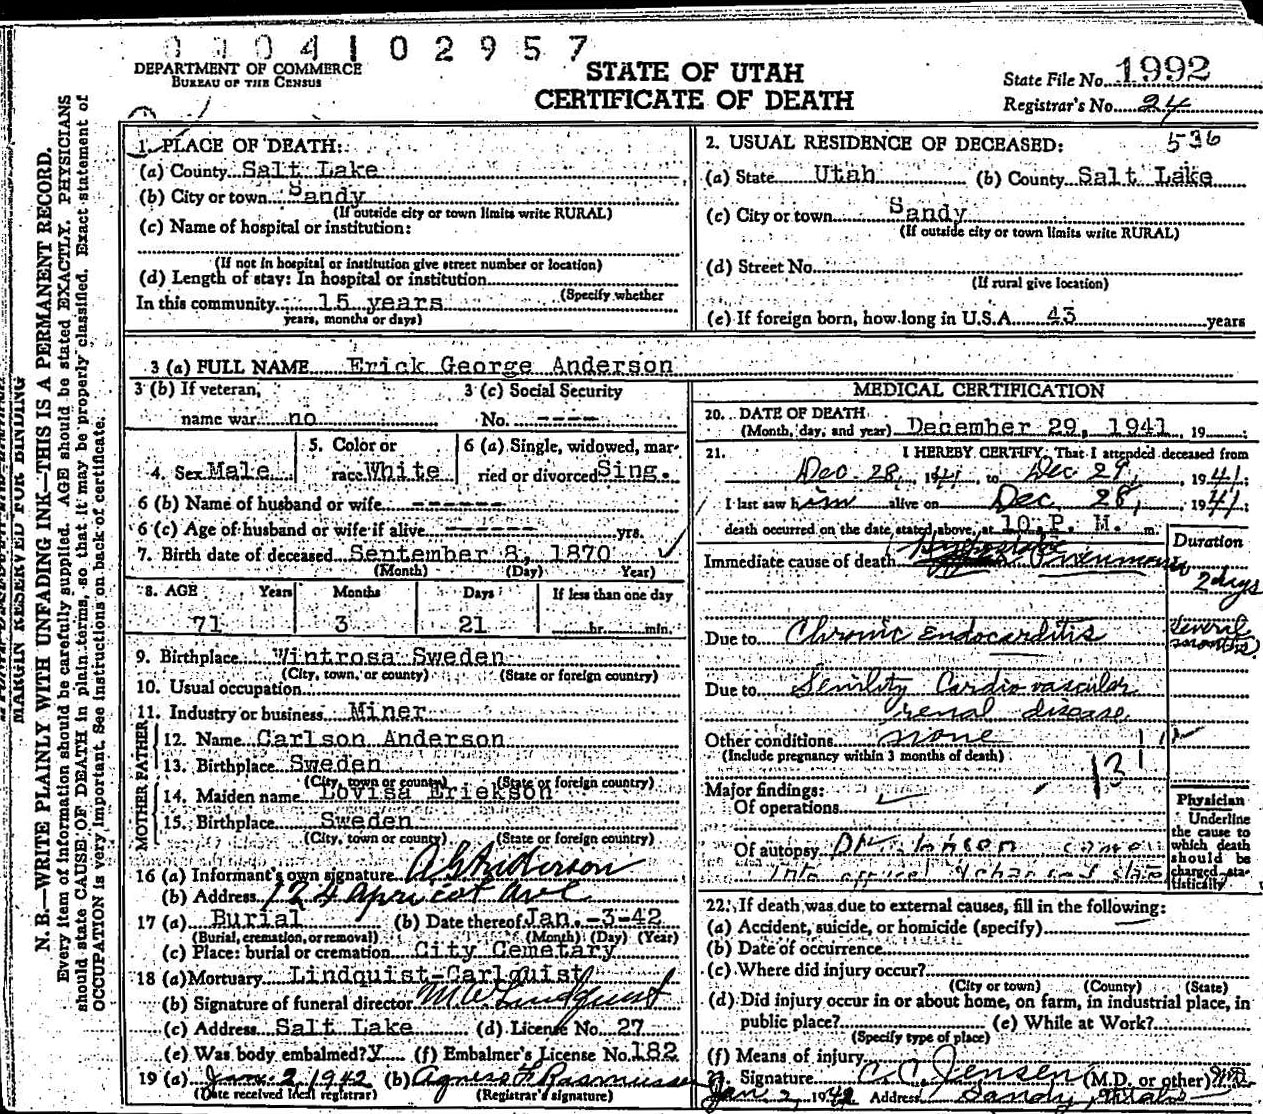 0 0 0 4 1 0 2 9 5 7
DEPARTMENT OF COMMERCE
BUREAU OF THE CENSUS
STATE OF UTAH
CERTIFICATE OF DEATH
State File No. 1992
Registrar's No. 24
MARGIN RESERVED FOR BINDING
N. B.—WRITE PLAINLY WITH UNFADING INK—THIS IS A PERMANENT RECORD.
Every item of information should be carefully supplied. AGE should be stated EXACTLY. PHYSICIANS
should state CAUSE OF DEATH in plain terms, so that it may be properly classified. Exact statement of
OCCUPATION is very important. See instructions on back of certificate.
1. PLACE OF DEATH:
(a) County Salt Lake
(b) City or town Sandy
(If outside city or town limits write RURAL)
(c) Name of hospital or institution:
(If not in hospital or institution give street number or location)
(d) Length of stay: In hospital or institution
(Specify whether
In this community 15 years
years, months or days)
2. USUAL RESIDENCE OF DECEASED: 536
(a) State Utah (b) County Salt Lake
(c) City or town Sandy
(If outside city or town limits write RURAL)
(d) Street No.
(If rural give location)
(e) If foreign born, how long in U.S.A. 43 years
3 (a) FULL NAME Erick George Anderson
3 (b) If veteran,
name war no
3 (c) Social Security
No. ----
4. Sex Male
5. Color or
race White
6 (a) Single, widowed, mar-
ried or divorced Sing.
6 (b) Name of husband or wife -------
6 (c) Age of husband or wife if alive ------- yrs.
7. Birth date of deceased September 8, 1870
(Month) (Day) Year)
8. AGE Years Months Days If less than one day
71 3 21 hr. min.
9. Birthplace Wintrosa Sweden
(City, town, or county) (State or foreign country)
10. Usual occupation
11. Industry or business Miner
FATHER
12. Name Carlson Anderson
13. Birthplace Sweden
(City, town or county) (State or foreign country)
MOTHER
14. Maiden name Lovisa Erickson
15. Birthplace Sweden
(City, town or county) (State or foreign country)
16 (a) Informant's own signature A G Anderson
(b) Address 124 Apricot Ave
17 (a) Burial (b) Date thereof Jan. -3-42
(Burial, cremation, or removal) (Month) (Day) (Year)
(c) Place: burial or cremation City Cemetary
18 (a) Mortuary Lindquist-Carlquist
(b) Signature of funeral director Lindquist
(c) Address Salt Lake (d) License No. 27
(e) Was body embalmed? Y (f) Embalmer's License No. 182
19 (a) Jan. 2, 1942 (b) Agness F Rasmussen
(Date received local registrar) (Registrar's signature)
MEDICAL CERTIFICATION
20. DATE OF DEATH
(Month, day, and year) December 29, 1941, 19
21. I HEREBY CERTIFY, That I attended deceased from
Dec 28, 1941, to Dec 29, 1941;
I last saw him alive on Dec 28, 1941;
death occurred on the date stated above, at 10 P. M. m.
Duration
Immediate cause of death Hypostatic Pneumonia
2 days
Due to Chronic Endocarditis several months
Due to Senility Cardio vascular
renal disease
Other conditions none
(Include pregnancy within 3 months of death)
131
Major findings:
Of operations
Of autopsy Dr. came
into office
Physician
Underline
the cause to
which death
should be
charged sta-
tistically
22. If death was due to external causes, fill in the following:
(a) Accident, suicide, or homicide (specify)
(b) Date of occurrence
(c) Where did injury occur?
(City or town) (County) (State)
(d) Did injury occur in or about home, on farm, in industrial place, in
public place? (e) While at Work?
(Specify type of place)
(f) Means of injury
Signature C. C. Jensen (M.D. or other) M.D.
Jan 2, 1942 Address Sandy, Utah